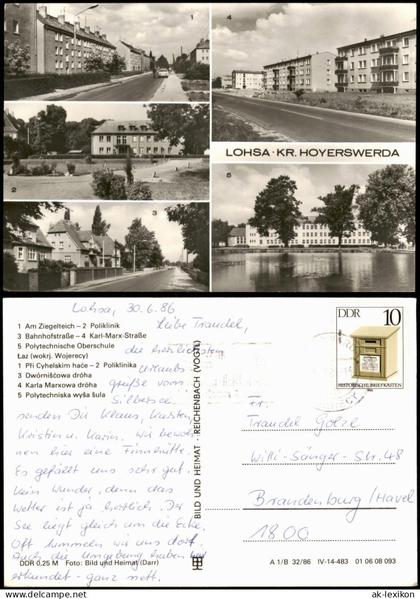 1
4
2
3
LOHSA · KR. HOYERSWERDA
5
Lohsa, 30.6.86
1 Am Ziegelteich – 2 Poliklinik
3 Bahnhofstraße – 4 Karl-Marx-Straße
5 Polytechnische Oberschule
Łaz (wokrj. Wojerecy)
1 Při Cyhelskim haće – 2 Poliklinika
3 Dwórnišćowa dróha
4 Karla Marxowa dróha
5 Polytechniska wyša šula
Liebe Traudel,
die herzlichsten
Urlaubs
grüße vom
Silbersee
senden Dir Klaus, Karsten,
Kristin u. Karin. Wir bewoh-
nen hier eine Finnhütte.
Es gefällt uns sehr gut.
Kein Wunder, denn das
Wetter ist ja herrlich. Der
See liegt gleich um die Ecke.
Oft tummeln wir uns dort.
Auch die Umgebung haben wir
erkundet - ganz nett.
DDR 0,25 M Foto: Bild und Heimat (Darr)
BILD UND HEIMAT · REICHENBACH (VOGTL)
DDR 10
HISTORISCHE BRIEFKÄSTEN
Fr.
Traudel Götze
Willi-Sänger-Str. 48
Brandenburg/Havel
1800
A 1/B 32/86 IV-14-483 01 06 08 093
ak-ansichtskarten.de